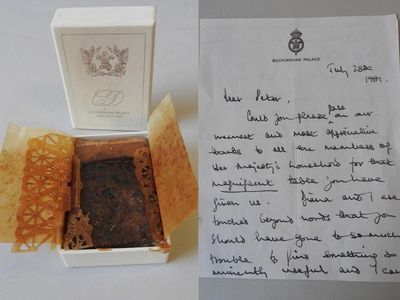 CD
BUCKINGHAM PALACE
BUCKINGHAM PALACE
July 28th
1981.
Dear Peter,
Could you please pass on our
warmest and most appreciative
thanks to all the members of
Her Majesty's Household for that
magnificent table you have
given us. Diana and I are
touched beyond words that you
should have gone to so much
trouble to find something so
eminently useful and I can